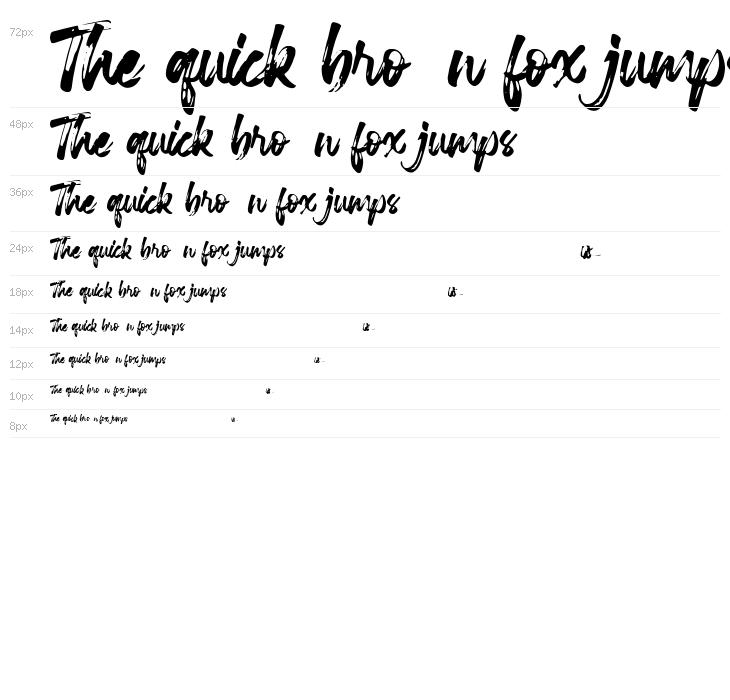 72px The quick bro n fox jumps
48px The quick bro n fox jumps
36px The quick bro n fox jumps
24px The quick bro n fox jumps
18px The quick bro n fox jumps
14px The quick bro n fox jumps
12px The quick bro n fox jumps
10px The quick bro n fox jumps
8px The quick bro n fox jumps